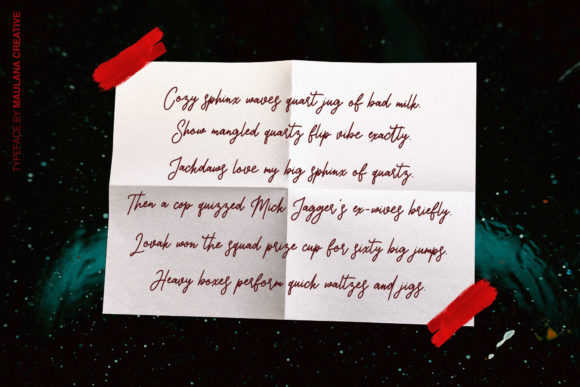 TYPEFACE BY MAULANA CREATIVE
Cozy sphinx waves quart jug of bad milk.
Show mangled quartz flip vibe exactly.
Jackdaws love my big sphinx of quartz.
Then a cop quizzed Mick Jagger's ex-wives briefly.
Lovak won the squad prize cup for sixty big jumps.
Heavy boxes perform quick waltzes and jigs.